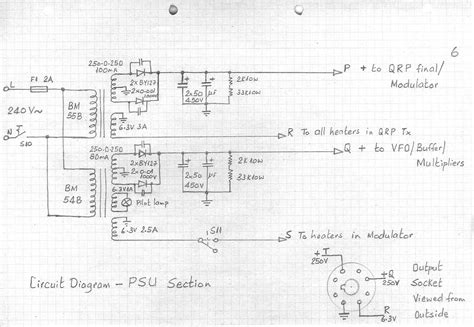 6
250-0-250
100mA
2×BY127
2×0.001
1000V
2×50 µF
450V
2K 10W
33K 10W
P + to QRP final/
Modulator
L
F1 2A
240V~
N
S10
BM
55B
6.3V 3A
R To all heaters in QRP Tx
250-0-250
80mA
2×BY127
2×0.01
1000V
2×50 µF
450V
2K 10W
33K 10W
Q + to VFO/Buffer/
Multipliers
BM
54B
6.3V 1A
Pilot lamp
6.3V 2.5A
S11
S To heaters in Modulator
Circuit Diagram - PSU Section
T
250V
+Q
250V
R
6.3V
Output
Socket
Viewed from
Outside